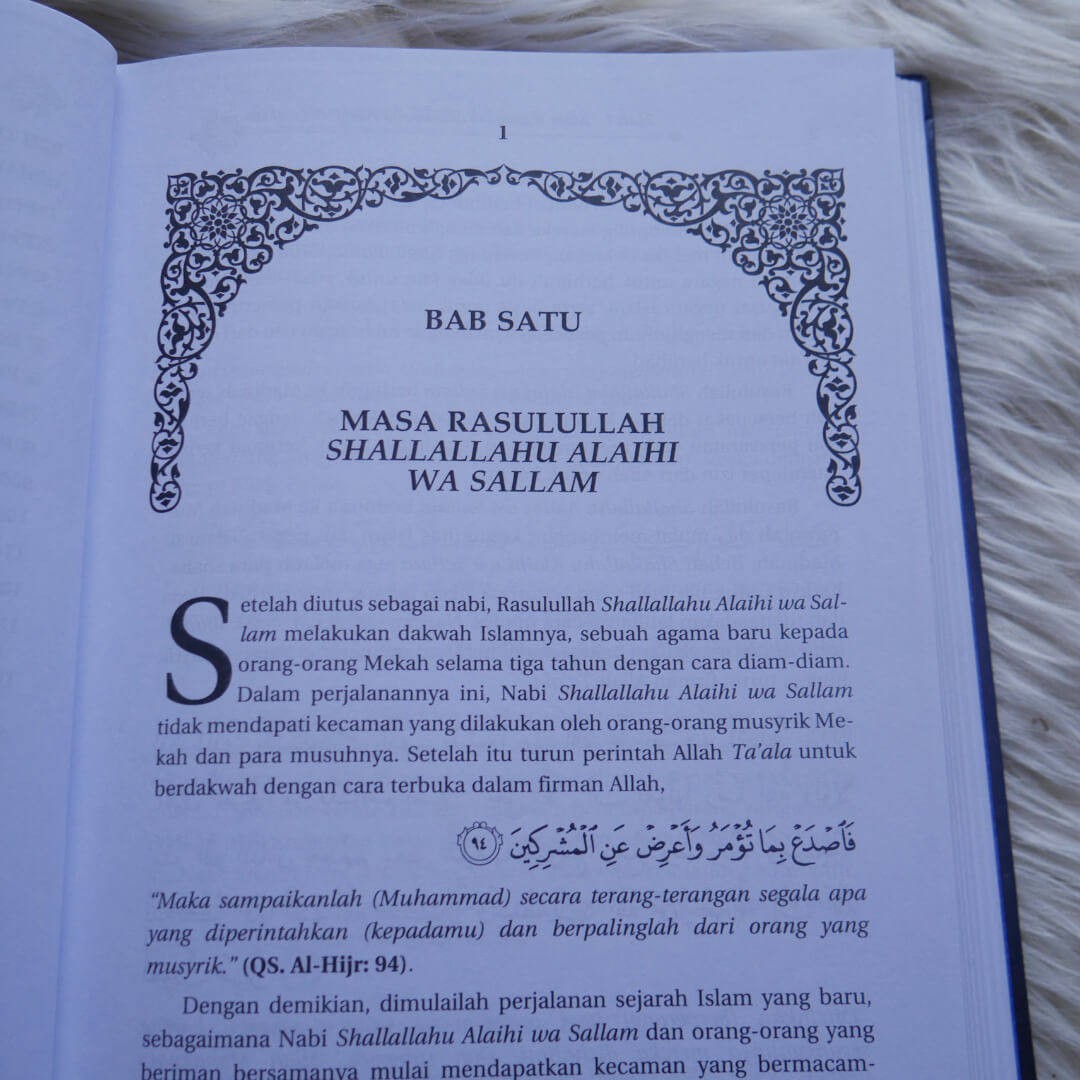 1
BAB SATU
MASA RASULULLAH
SHALLALLAHU ALAIHI
WA SALLAM
Setelah diutus sebagai nabi, Rasulullah Shallallahu Alaihi wa Sal-
lam melakukan dakwah Islamnya, sebuah agama baru kepada
orang-orang Mekah selama tiga tahun dengan cara diam-diam.
Dalam perjalanannya ini, Nabi Shallallahu Alaihi wa Sallam
tidak mendapati kecaman yang dilakukan oleh orang-orang musyrik Me-
kah dan para musuhnya. Setelah itu turun perintah Allah Ta’ala untuk
berdakwah dengan cara terbuka dalam firman Allah,
فَٱصۡدَعۡ بِمَا تُؤۡمَرُ وَأَعۡرِضۡ عَنِ ٱلۡمُشۡرِكِينَ ٩٤
“Maka sampaikanlah (Muhammad) secara terang-terangan segala apa
yang diperintahkan (kepadamu) dan berpalinglah dari orang yang
musyrik.” (QS. Al-Hijr: 94).
Dengan demikian, dimulailah perjalanan sejarah Islam yang baru,
sebagaimana Nabi Shallallahu Alaihi wa Sallam dan orang-orang yang
beriman bersamanya mulai mendapatkan kecaman yang bermacam-